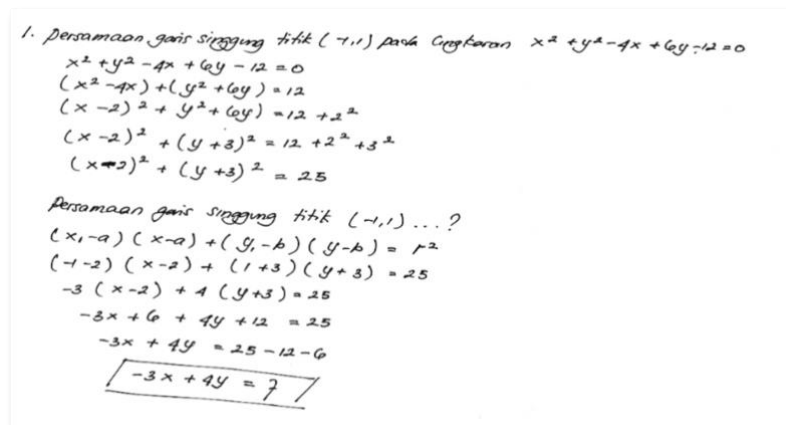 1. Persamaan garis singgung titik (-1,1) pada lingkaran x² + y² - 4x + 6y - 12 = 0
x² + y² - 4x + 6y - 12 = 0
(x² - 4x) + (y² + 6y) = 12
(x - 2)² + y² + 6y) = 12 + 2²
(x - 2)² + (y + 3)² = 12 + 2² + 3²
(x - 2)² + (y + 3)² = 25
Persamaan garis singgung titik (-1,1) ...?
(x₁ - a) (x - a) + (y₁ - b) (y - b) = r²
(-1 - 2) (x - 2) + (1 + 3) (y + 3) = 25
-3 (x - 2) + 4 (y + 3) = 25
-3x + 6 + 4y + 12 = 25
-3x + 4y = 25 - 12 - 6
-3x + 4y = 7